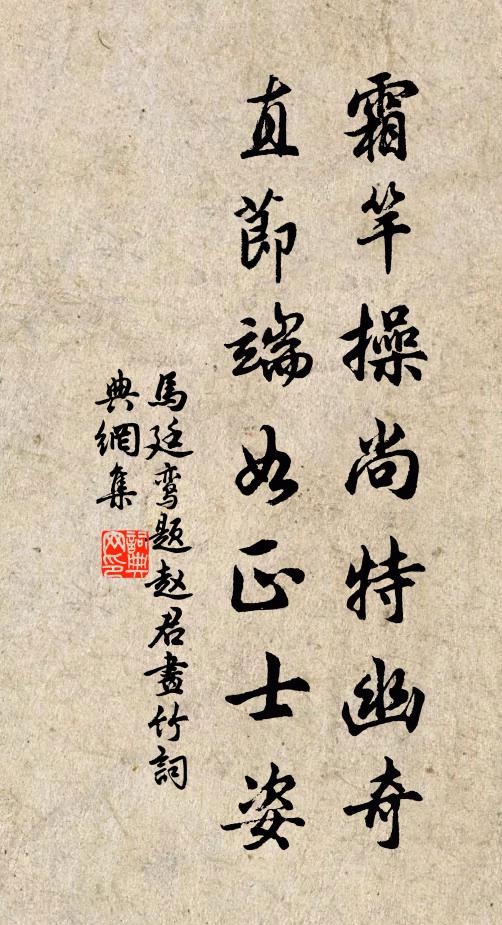 霜竿操尚特幽奇
直節端如正士姿
馬廷鸾题赵君畫竹詞
典網集
詞典
网印